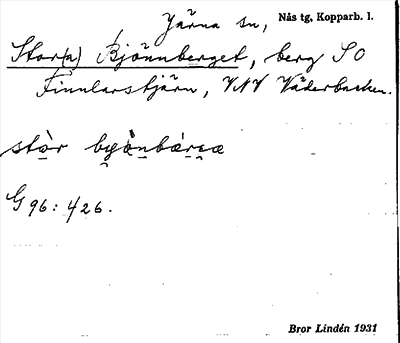 Järna sn, Nås tg, Kopparb. l.
Stor(a) Björnnberget, berg SO
Finnlarstjärn, VNV Väderbacken.
stòr byònbærɛæ
G 96: 426.
Bror Lindén 1931